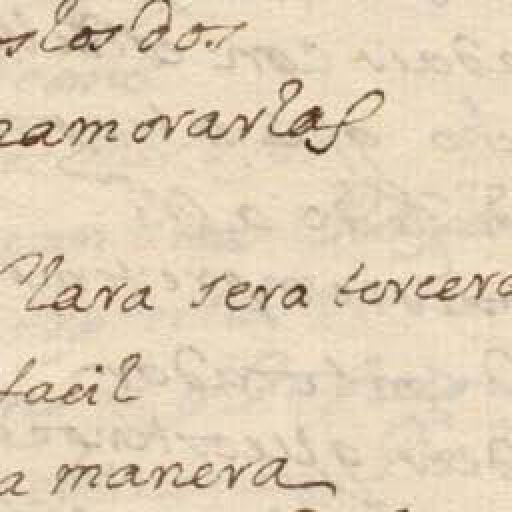 los dos
namorarlas
Clara sera tercera
facil
a manera